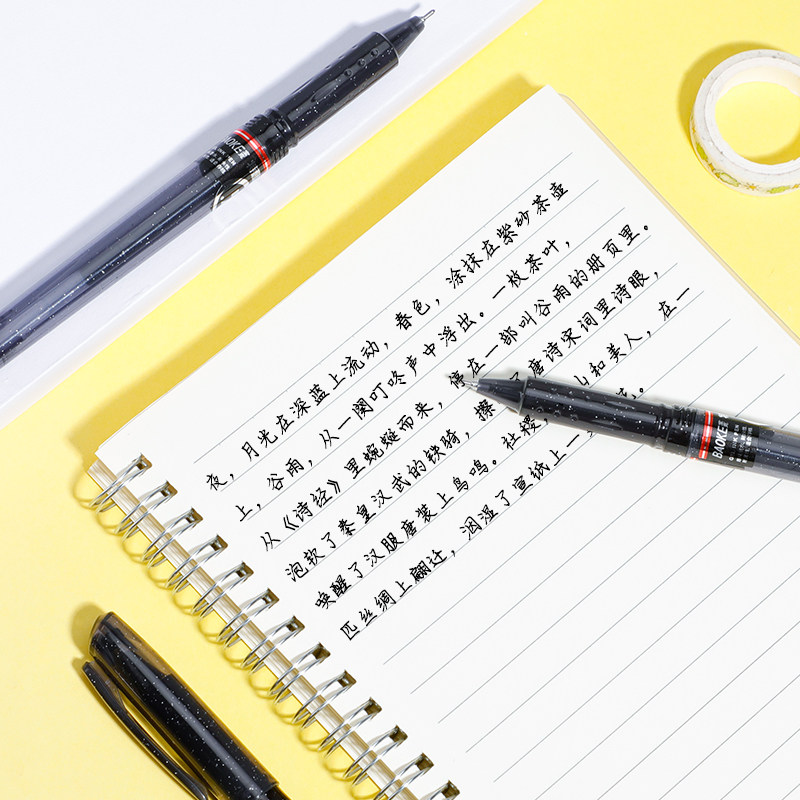 夜，月光在深蓝上流动，春色，涂抹在紫砂茶壶
上，谷雨，从一阕叮咚声中浮出。一枚茶叶，
从《诗经》里蜿蜒而来，停在一部叫谷雨的册页里。
泡软了秦皇汉武的铁骑，擦 了唐诗宋词里诗眼，
唤醒了汉服唐装上鸟鸣。社稷， 和美人，在一
匹丝绸上翩迁，洇湿了宣纸上一
BAOKE
BAOKE